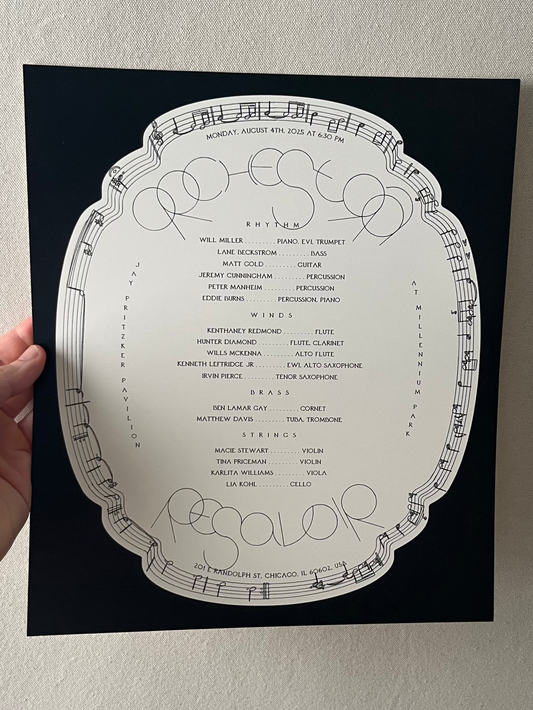 MONDAY, AUGUST 4TH, 2025 AT 6:30 PM
ORCHESTRA
RHYTHM
WILL MILLER ......... PIANO, EVI, TRUMPET
LANE BECKSTROM ........ BASS
MATT GOLD ......... GUITAR
JEREMY CUNNINGHAM ......... PERCUSSION
PETER MANHEIM ........ PERCUSSION
EDDIE BURNS ......... PERCUSSION, PIANO
WINDS
KENTHANEY REDMOND ......... FLUTE
HUNTER DIAMOND ........ FLUTE, CLARINET
WILLS MCKENNA ......... ALTO FLUTE
KENNETH LEFTRIDGE JR ........ EWI, ALTO SAXOPHONE
IRVIN PIERCE ........ TENOR SAXOPHONE
BRASS
BEN LAMAR GAY ......... CORNET
MATTHEW DAVIS ........ TUBA, TROMBONE
STRINGS
MACIE STEWART ......... VIOLIN
TINA PRICEMAN ......... VIOLIN
KARLITA WILLIAMS ........ VIOLA
LIA KOHL ......... CELLO
JAY PRITZKER PAVILION
AT MILLENNIUM PARK
RESAVOIR
201 E RANDOLPH ST, CHICAGO, IL 60602, USA